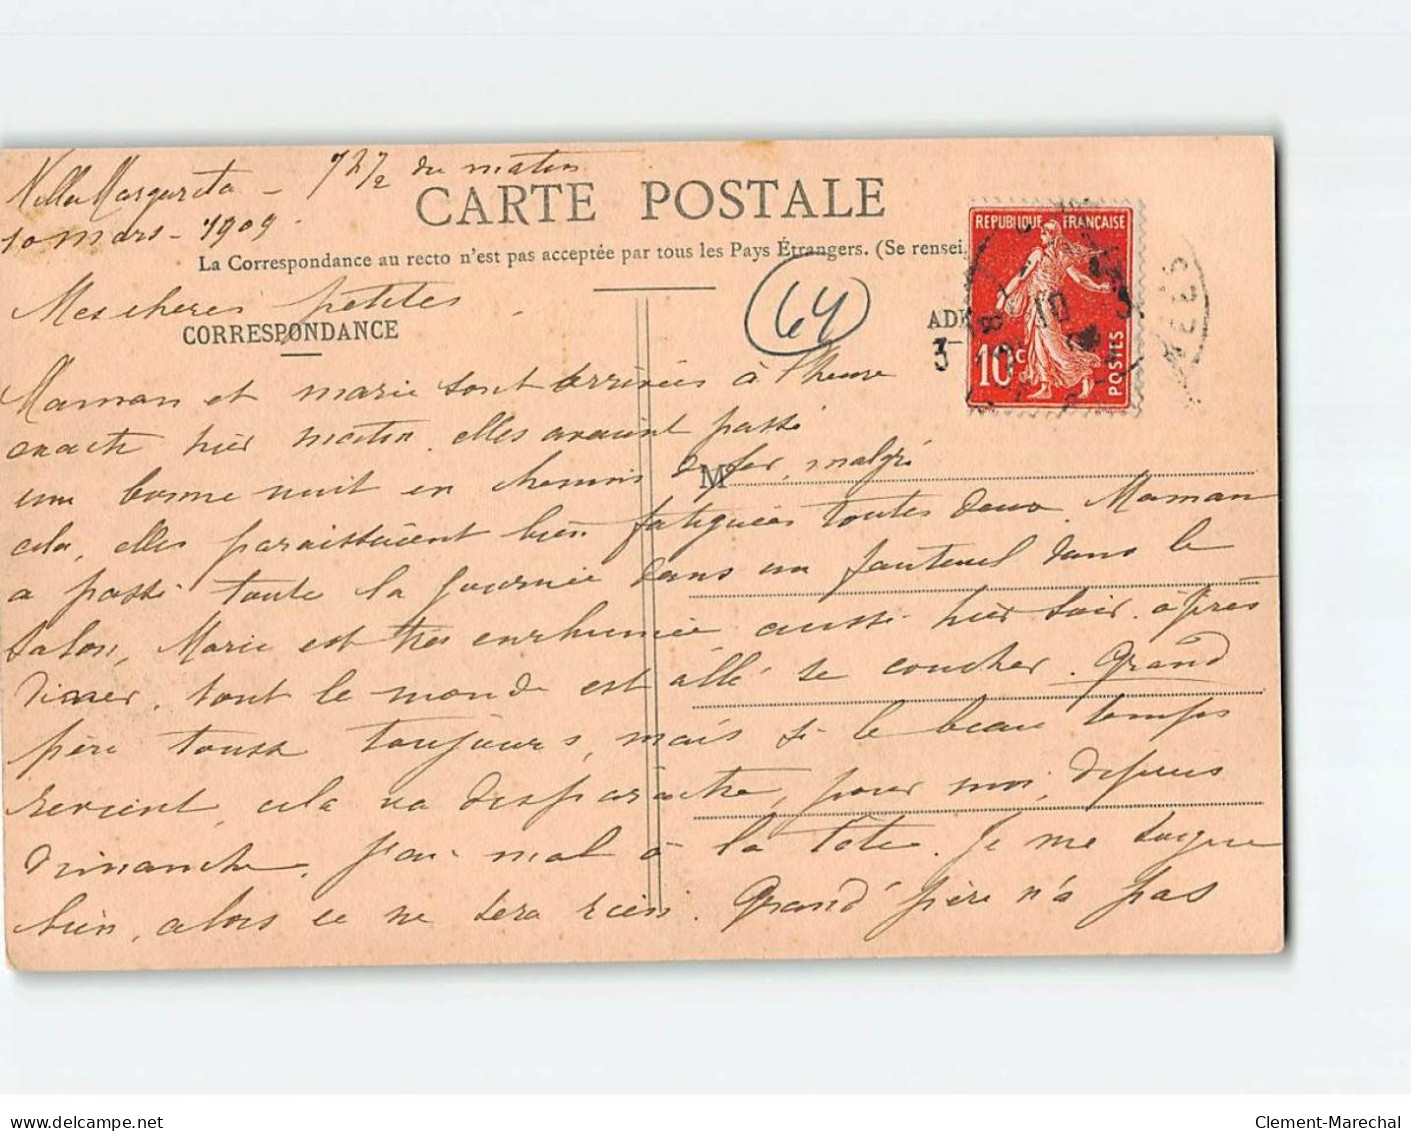 Villa Margarita - 7 h 1/2 du matin
10 mars - 1909
CARTE POSTALE
La Correspondance au recto n'est pas acceptée par tous les Pays Étrangers. (Se rensei
REPUBLIQUE FRANÇAISE
10c
POSTES
10
3
Mes cheres petites
64
CORRESPONDANCE
AD
3
Maman et marie sont arrivées à l'heure
exacte hier matin. elles avaient passé
une bonne nuit en chemin de fer, malgré
M
cela, elles paraissaient bien fatiguées toutes deux. Maman
a passé toute la journée dans un fauteuil dans le
salon, Marie est très enrhumée aussi hier soir. après
diner, tout le monde est allé se coucher. Grand
père tousse toujours, mais si le beau temps
revient, cela va disparaître, pour moi, depuis
dimanche, j'ai mal à la tête. Je me soigne
bien, alors ce ne sera rien. Grand' père n'a pas
delcampe.net
Clement-Marechal